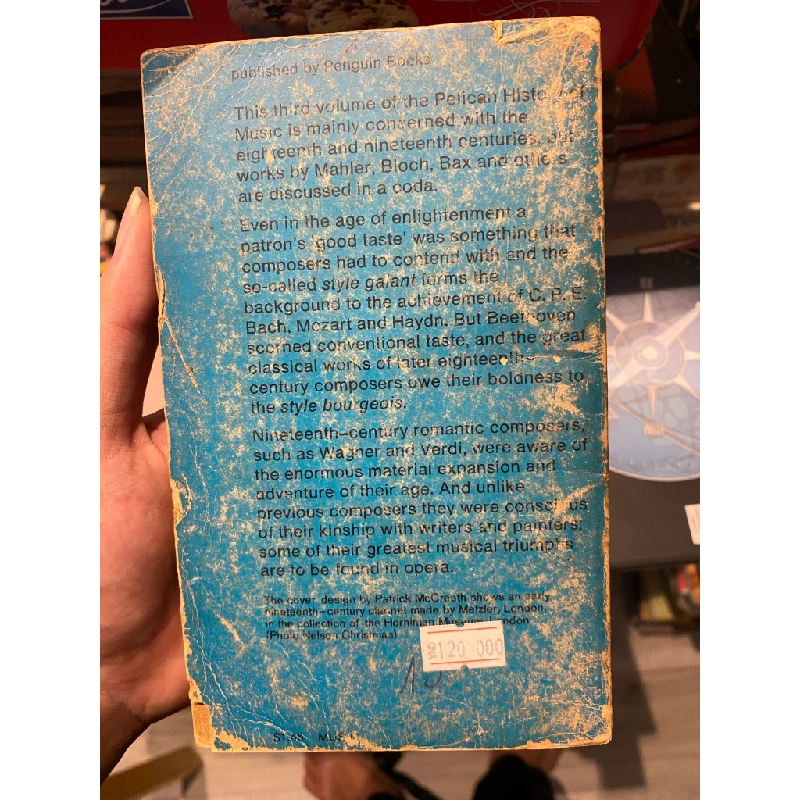 published by Penguin Books
This third volume of the Pelican History of
Music is mainly concerned with the
eighteenth and nineteenth centuries, but
works by Mahler, Bloch, Bax and others
are discussed in a coda.
Even in the age of enlightenment a
patron's 'good taste' was something that
composers had to contend with and the
so-called style galant forms the
background to the achievement of C. P. E.
Bach, Mozart and Haydn. But Beethoven
scorned conventional taste, and the great
classical works of later eighteenth-
century composers owe their boldness to
the style bourgeois.
Nineteenth-century romantic composers,
such as Wagner and Verdi, were aware of
the enormous material expansion and
adventure of their age. And unlike
previous composers they were conscious
of their kinship with writers and painters;
some of their greatest musical triumphs
are to be found in opera.
The cover design by Patrick McCreeth shows an early
nineteenth-century clarinet made by Metzler, London,
in the collection of the Horniman Museum, London
(Photo Nelson Christmas)
120 000
10